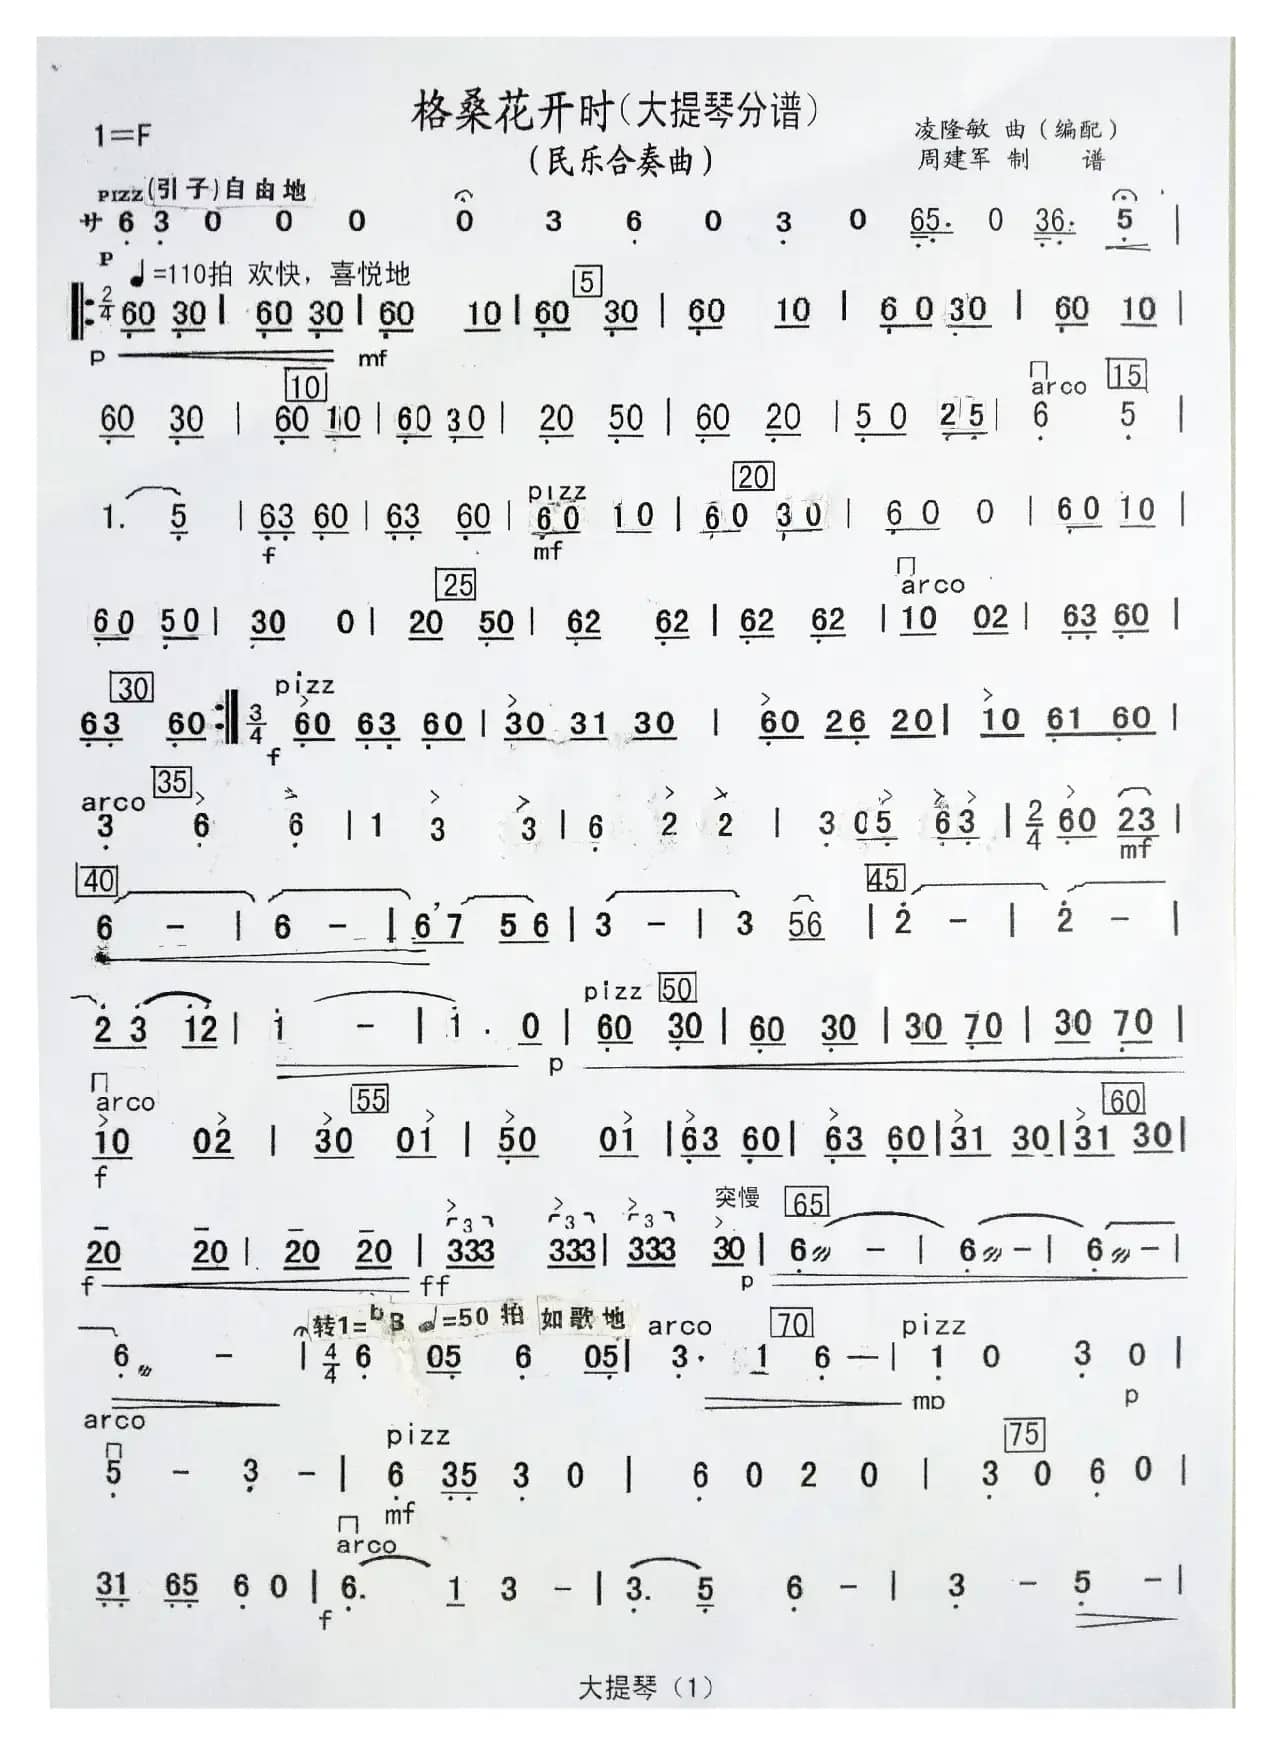 格桑花开时(大提琴分谱)
1=F
凌隆敏 曲(编配)
(民乐合奏曲)
周建军 制 谱
PIZZ(引子)自由地
サ 6 3 0 0 0 0 3 6 0 3 0 65. 0 36. 5 |
P ♩=110拍 欢快，喜悦地 5
2/4 60 30 | 60 30 | 60 10 | 60 30 | 60 10 | 60 30 | 60 10 |
p mf
10 arco 15
60 30 | 60 10 | 60 30 | 20 50 | 60 20 | 50 25 | 6 5 |
pizz 20
1. 5 | 63 60 | 63 60 | 60 10 | 60 30 | 60 0 | 60 10 |
f mf
25 arco
60 50 | 30 0 | 20 50 | 62 62 | 62 62 | 10 02 | 63 60 |
30 pizz
63 60 :| 3/4 60 63 60 | 30 31 30 | 60 26 20 | 10 61 60 |
f
arco 35
3 6 6 | 1 3 3 | 6 2 2 | 3 05 63 | 2/4 60 23 |
mf
40 45
6 - | 6 - | 6 7 56 | 3 - | 3 56 | 2 - | 2 - |
pizz 50
23 12 | 1 - | 1 . 0 | 60 30 | 60 30 | 30 70 | 30 70 |
p
arco 55 60
10 02 | 30 01 | 50 01 | 63 60 | 63 60 | 31 30 | 31 30 |
f
3 3 3 3 突慢 65
20 20 | 20 20 | 333 333 | 333 30 | 6 - | 6 - | 6 - |
f ff p
转1=bB ♩=50拍 如歌地 arco 70 pizz
6 - | 4/4 6 05 6 05 | 3. 1 6 - | 1 0 3 0 |
mp p
arco pizz 75
5 - 3 - | 6 35 3 0 | 6 0 2 0 | 3 0 6 0 |
mf
arco
31 65 6 0 | 6. 1 3 - | 3. 5 6 - | 3 - 5 - |
f
大提琴（1）